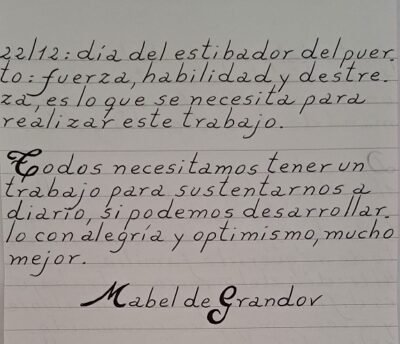 22/12: día del estibador del puer.
to: fuerza, habilidad y destre.
za, es lo que se necesita para
realizar este trabajo.
Todos necesitamos tener un
trabajo para sustentarnos a
diario, si podemos desarrollar.
lo con alegría y optimismo, mucho
mejor.
Mabel de Grandov